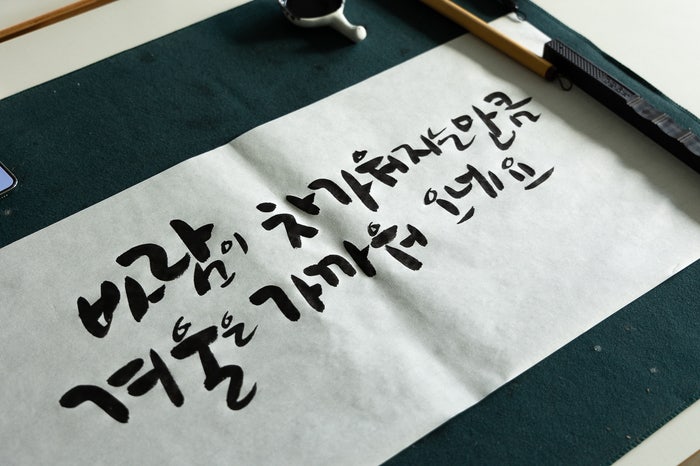 바람이 차가워지는만큼
겨울은 가까워 오네요